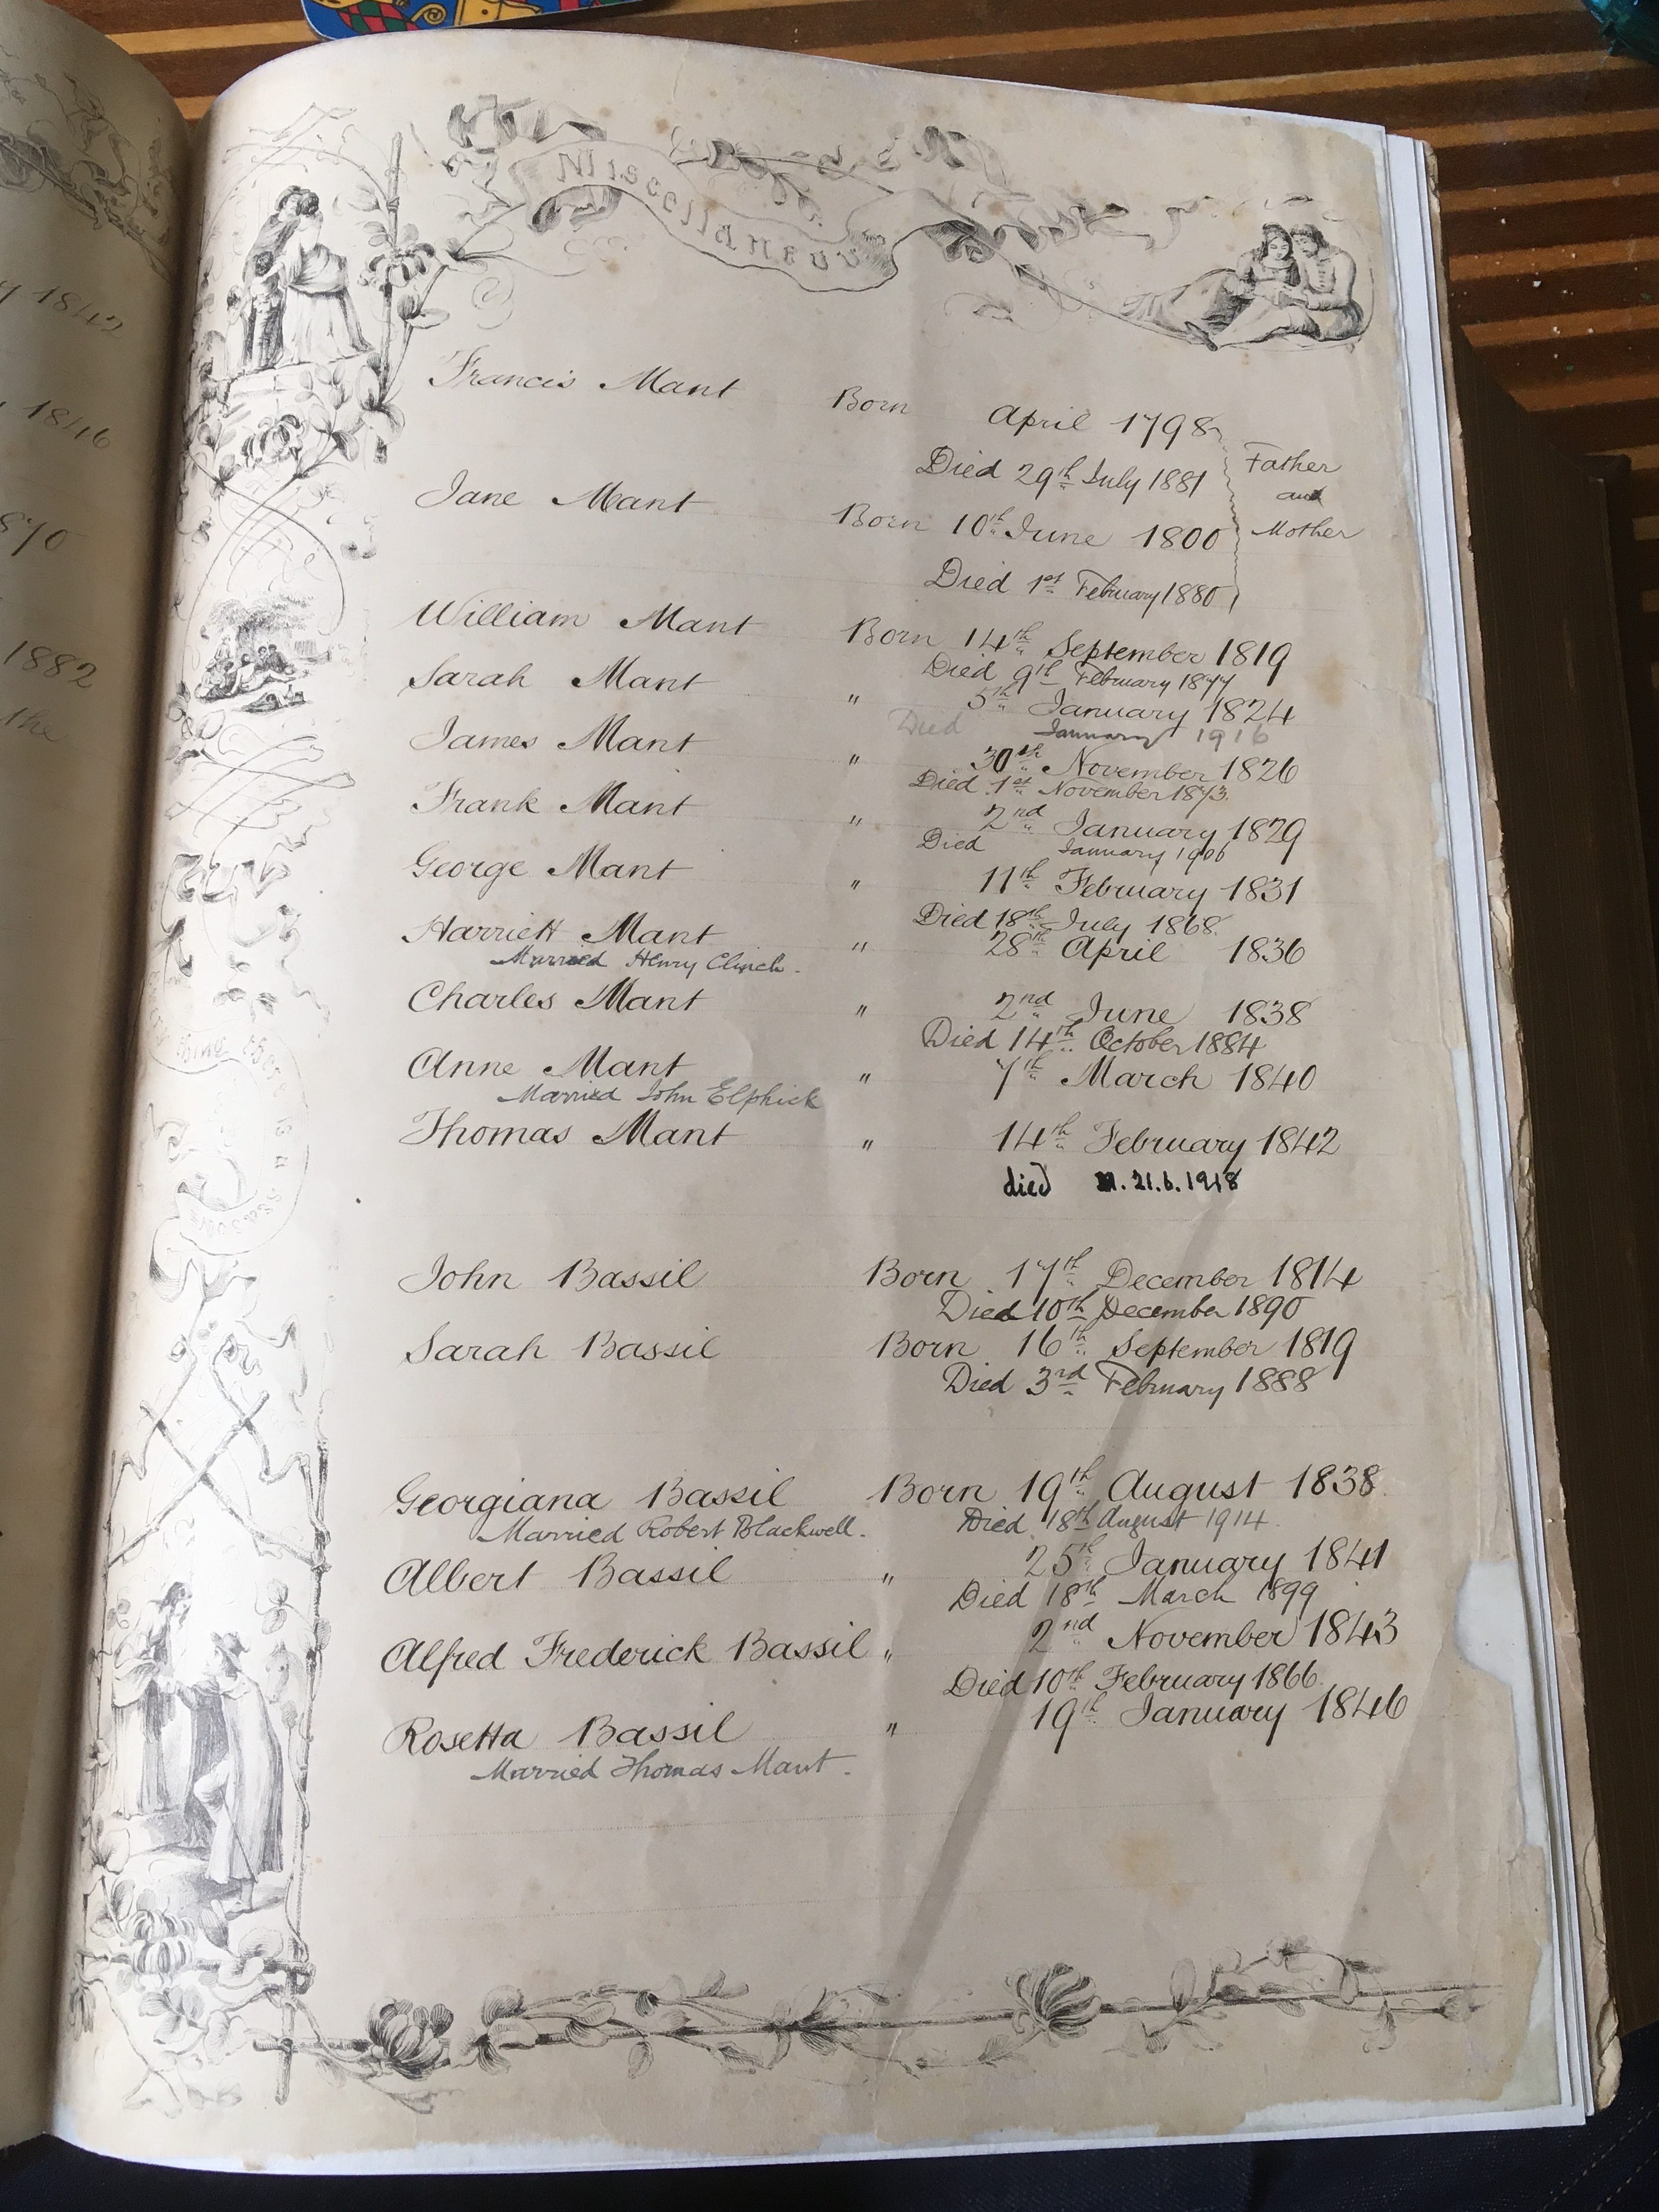 Miscellaneous
Francis Mant Born April 1798
Died 29th July 1881 Father
and
Jane Mant Born 10th June 1800 Mother
Died 1st February 1880
William Mant Born 14th September 1819
Died 9th February 1877
Sarah Mant " 5th January 1824
Died January 1916
James Mant " 30th November 1826
Died 1st November 1873.
Frank Mant " 2nd January 1829
Died January 1906
George Mant " 11th February 1831
Died 18th July 1868.
Harriett Mant " 28th April 1836
Married Henry Clinch.
Charles Mant " 2nd June 1838
Died 14th October 1884
Anne Mant " 7th March 1840
Married John Elphick
Thomas Mant " 14th February 1842
died 21.6.1918
John Bassil Born 17th December 1814
Died 10th December 1890
Sarah Bassil Born 16th September 1819
Died 3rd February 1888
Georgiana Bassil Born 19th August 1838
Married Robert Blackwell. Died 18th August 1914.
Albert Bassil " 25th January 1841
Died 18th March 1899
Alfred Frederick Bassil " 2nd November 1843
Died 10th February 1866.
Rosetta Bassil " 19th January 1846
Married Thomas Mant.
1842
1846
1882
the